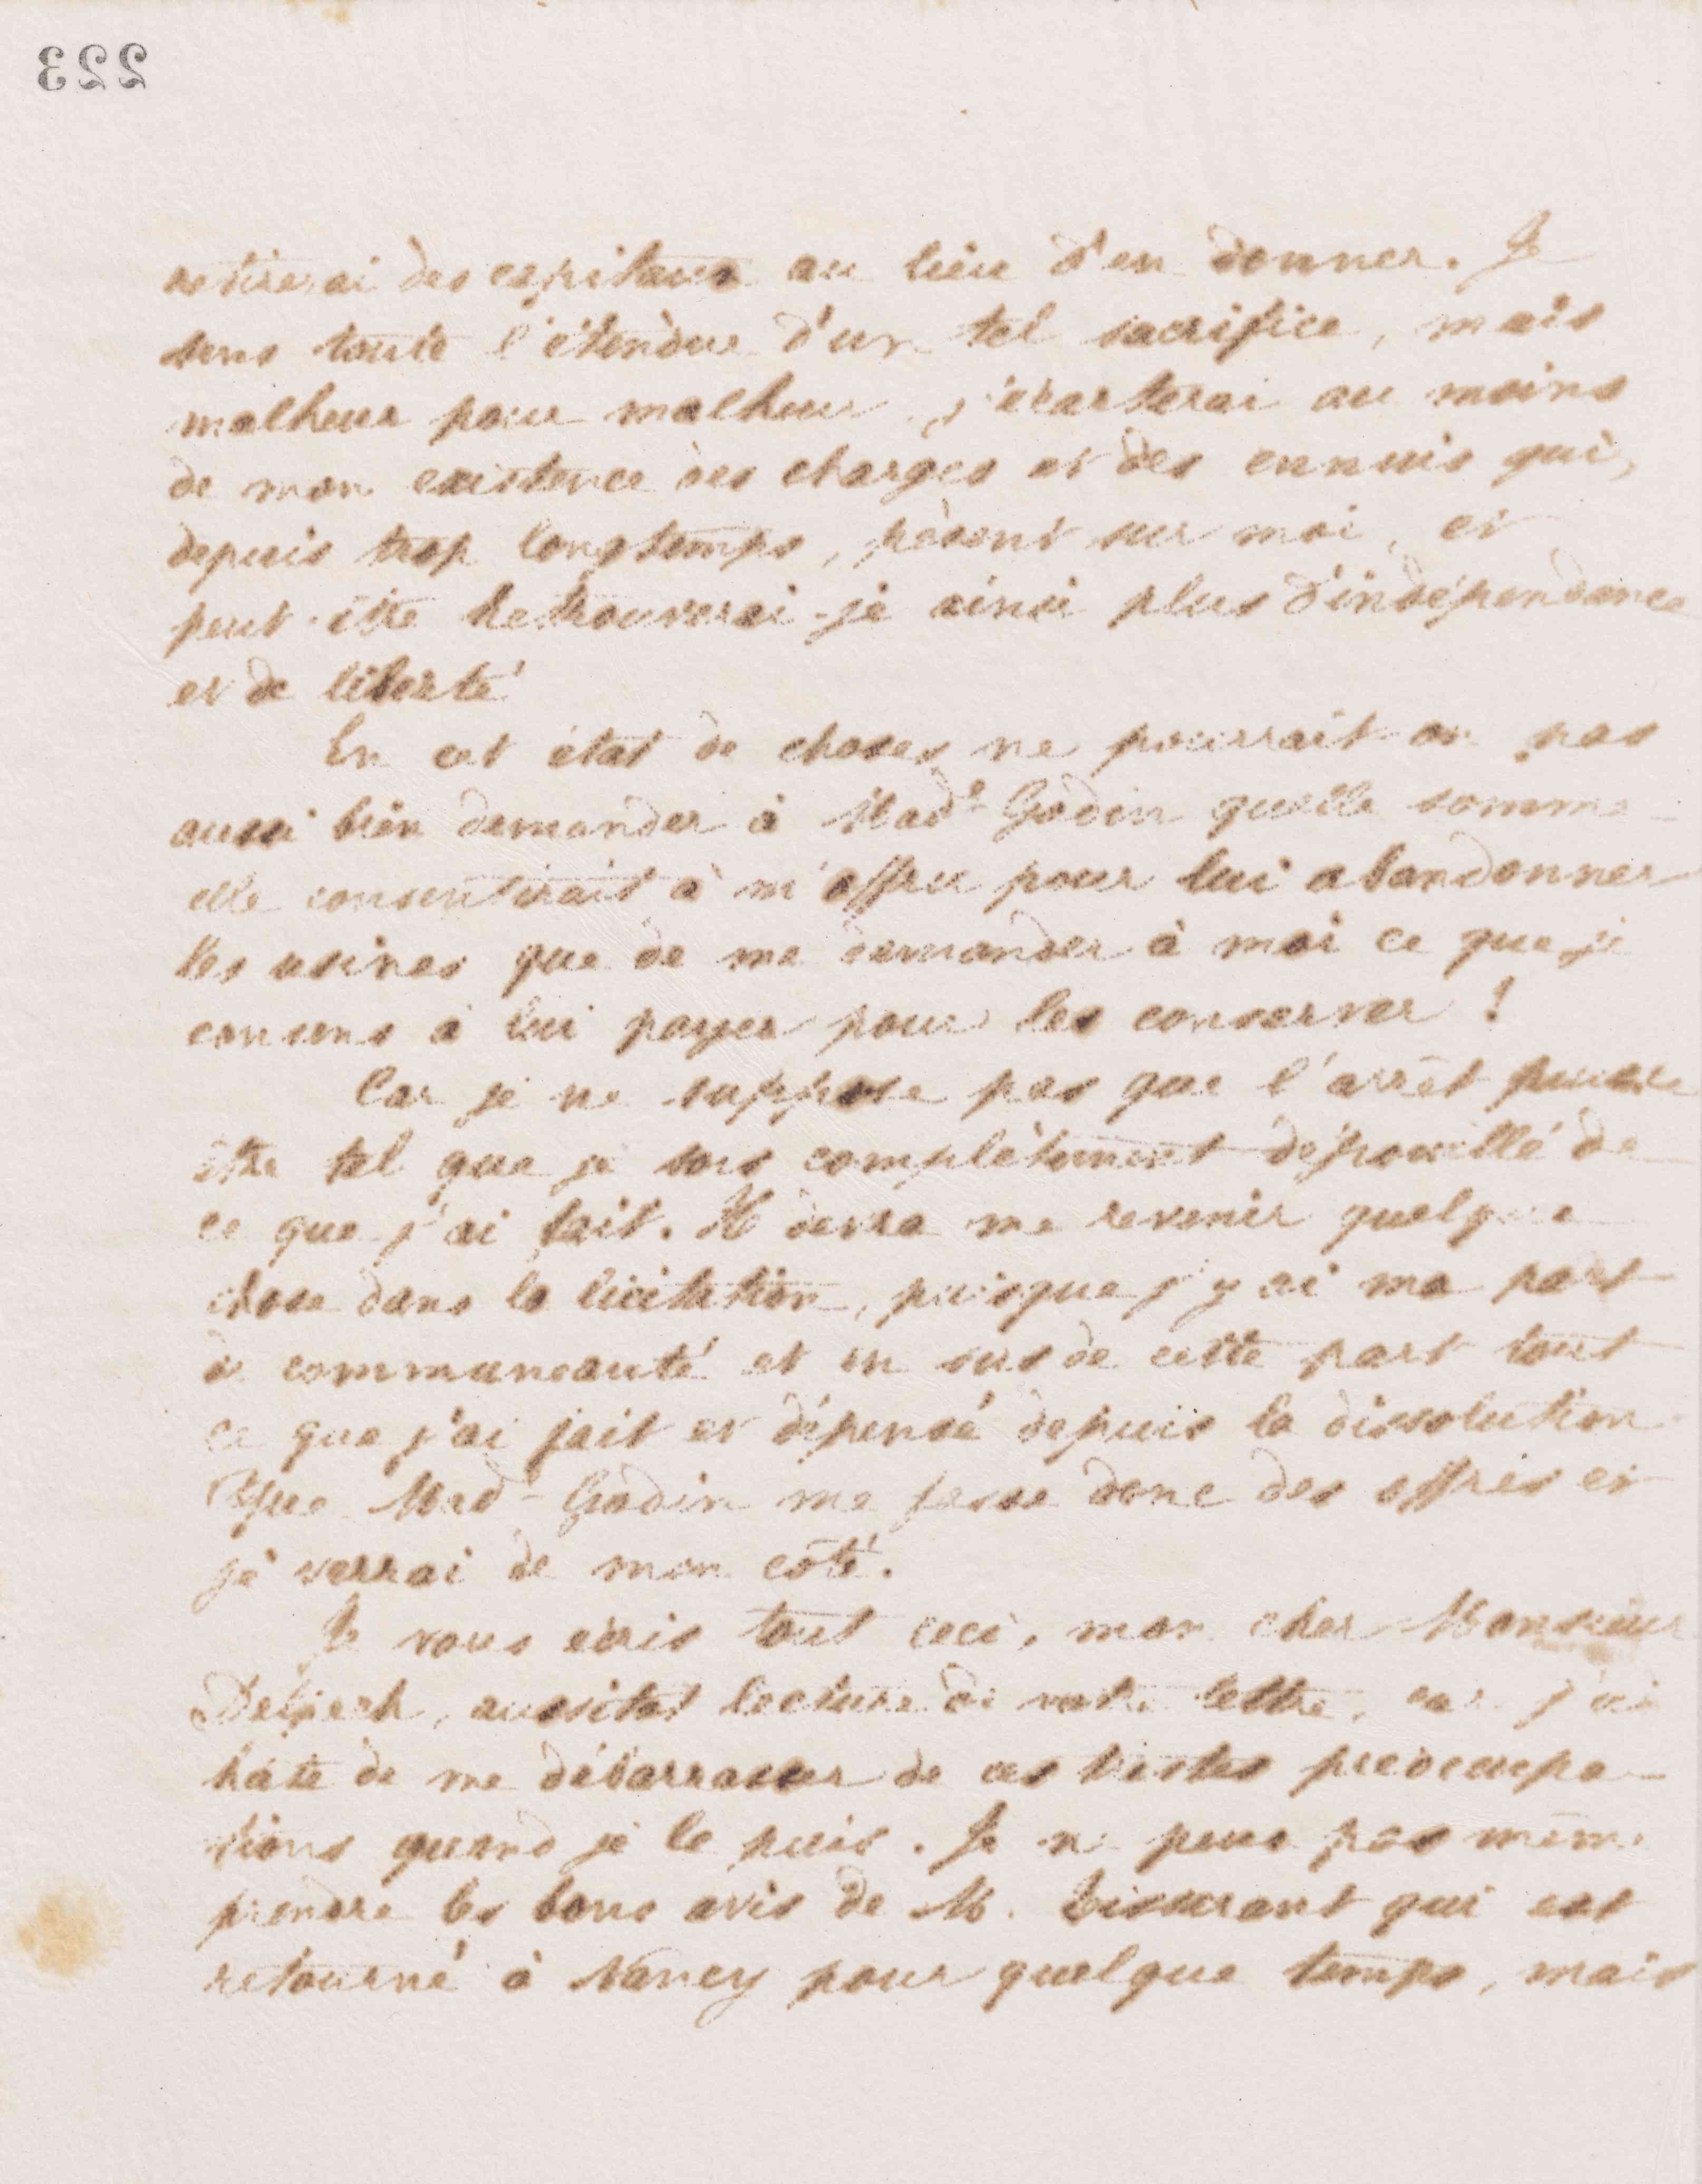 223
retirerai des capitaux au lieu d'en donner. Je
sens toute l'étendue d'un tel sacrifice, mais
malheur pour malheur, j'écarterai au moins
de mon existence des charges et des ennuis qui,
depuis trop longtemps, pèsent sur moi, et
peut-être retrouverai-je ainsi plus d'indépendance
et de liberté
En cet état de choses, ne pourrait-on pas
aussi bien demander à Made Godin quelle somme
elle consentirait à m'offrir pour lui abandonner
les usines que de me demander à moi ce que je
consens à lui payer pour les conserver !
Car je ne suppose pas que l'arrêt puisse
être tel que je sois complètement dépouillé de
ce que j'ai fait. Il devra me revenir quelque
chose dans la licitation, puisque j'y ai ma part
de communauté et en sus de cette part tout
ce que j'ai fait et dépensé depuis la dissolution
Que Mad Godin me fasse donc des offres et
je verrai de mon côté.
Je vous écris tout ceci, mon cher Monsieur
Delpech, aussitôt lecture de votre lettre, car j'ai
hâte de me débarrasser de ces tristes préoccupa-
tions quand je le puis. Je ne peux pas même
prendre les bons avis de M. Tisserant qui est
retourné à Nancy pour quelque temps, mais